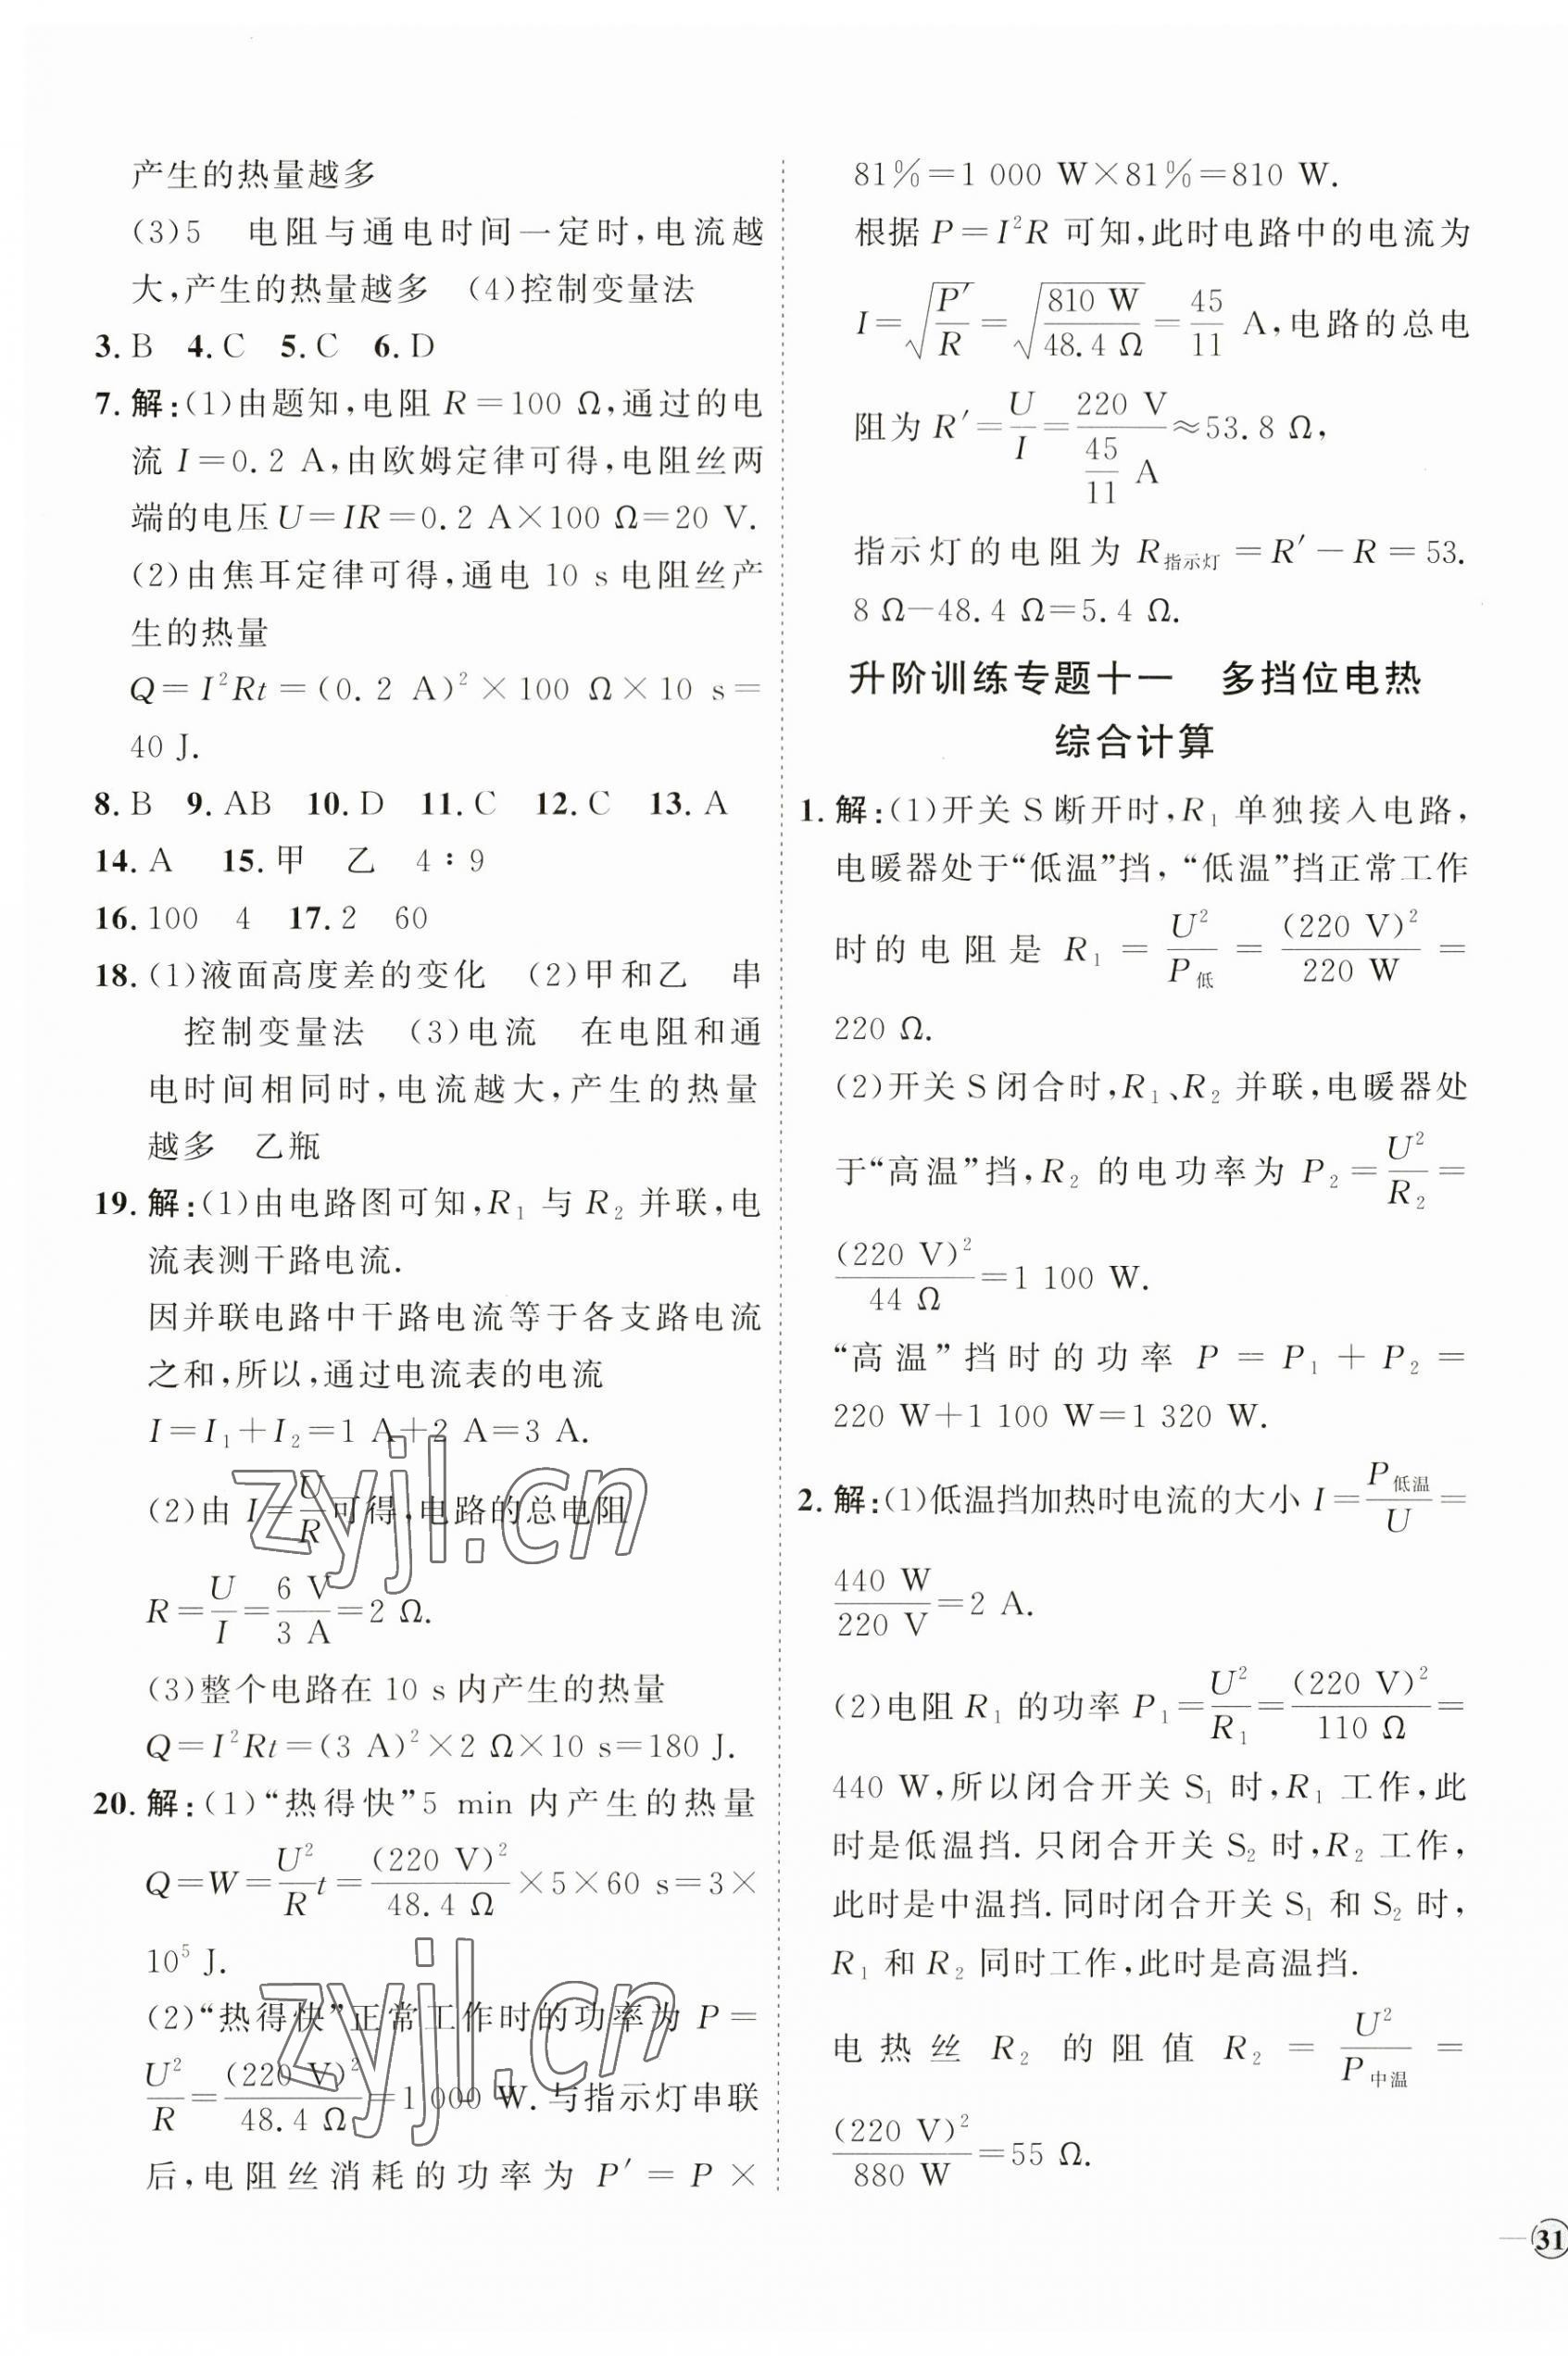 产生的热量越多
(3)5　电阻与通电时间一定时,电流越
大,产生的热量越多　(4)控制变量法
3. B　4. C　5. C　6. D
7. 解:(1)由题知,电阻 R=100 Ω,通过的电
流 I=0.2 A,由欧姆定律可得,电阻丝两
端的电压 U=IR=0.2 A×100 Ω=20 V.
(2)由焦耳定律可得,通电 10 s 电阻丝产
生的热量
Q=I²Rt=(0.2 A)²×100 Ω×10 s=
40 J.
8. B　9. AB　10. D　11. C　12. C　13. A
14. A　15. 甲　乙　4∶9
16. 100　4　17. 2　60
18. (1)液面高度差的变化　(2)甲和乙　串
控制变量法　(3)电流　在电阻和通
电时间相同时,电流越大,产生的热量
越多　乙瓶
19. 解:(1)由电路图可知,R₁ 与 R₂ 并联,电
流表测干路电流.
因并联电路中干路电流等于各支路电流
之和,所以,通过电流表的电流
I=I₁+I₂=1 A+2 A=3 A.
(2)由 I=U/R 可得,电路的总电阻
R=U/I=6 V/3 A=2 Ω.
(3)整个电路在 10 s 内产生的热量
Q=I²Rt=(3 A)²×2 Ω×10 s=180 J.
20. 解:(1)“热得快”5 min 内产生的热量
Q=W=U²/R t=(220 V)²/48.4 Ω×5×60 s=3×
10⁵ J.
(2)“热得快”正常工作时的功率为 P=
U²/R=(220 V)²/48.4 Ω=1 000 W. 与指示灯串联
后,电阻丝消耗的功率为 P′=P×
81%=1 000 W×81%=810 W.
根据 P=I²R 可知,此时电路中的电流为
I=√(P′/R)=√(810 W/48.4 Ω)=45/11 A,电路的总电
阻为 R′=U/I=220 V/(45/11 A)≈53.8 Ω,
指示灯的电阻为 R指示灯=R′-R=53.
8 Ω-48.4 Ω=5.4 Ω.
升阶训练专题十一　多挡位电热
综合计算
1. 解:(1)开关 S 断开时,R₁ 单独接入电路,
电暖器处于“低温”挡,“低温”挡正常工作
时的电阻是 R₁=U²/P低=(220 V)²/220 W=
220 Ω.
(2)开关 S 闭合时,R₁、R₂ 并联,电暖器处
于“高温”挡,R₂ 的电功率为 P₂=U²/R₂=
(220 V)²/44 Ω=1 100 W.
“高温”挡时的功率 P=P₁+P₂=
220 W+1 100 W=1 320 W.
2. 解:(1)低温挡加热时电流的大小 I=P低温/U=
440 W/220 V=2 A.
(2)电阻 R₁ 的功率 P₁=U²/R₁=(220 V)²/110 Ω=
440 W,所以闭合开关 S₁ 时,R₁ 工作,此
时是低温挡. 只闭合开关 S₂ 时,R₂ 工作,
此时是中温挡. 同时闭合开关 S₁ 和 S₂ 时,
R₁ 和 R₂ 同时工作,此时是高温挡.
电热丝 R₂ 的阻值 R₂=U²/P中温=
(220 V)²/880 W=55 Ω.
31
zyjl.cn
zyjl.cn